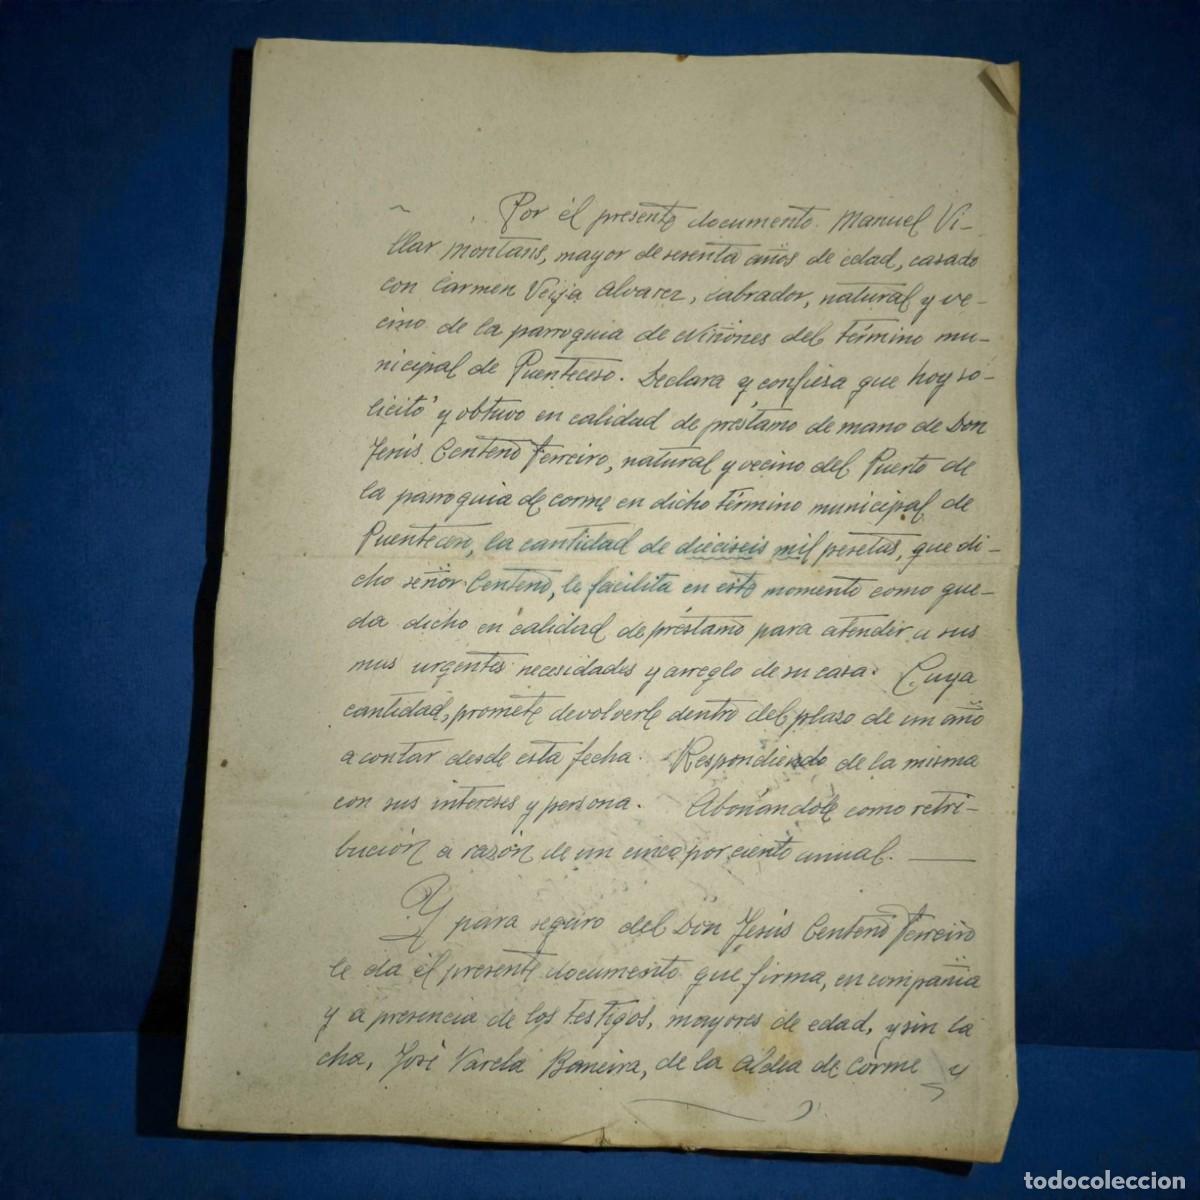 Por él presente documento. Manuel Vi-
llar Montans, mayor de sesenta años de edad, casado
con Carmen Veiga Alvarez, labrador, natural y ve-
cino de la parroquia de Niñones del término mu-
nicipal de Puenteceso. Declara y confiesa que hoy so-
licitó y obtuvo en calidad de préstamo de mano de Don
Jesús Centeno Ferreiro, natural y vecino del Puerto de
la parroquia de corme en dicho término municipal de
Puenteceso, la cantidad de dieciseis mil pesetas, que di-
cho señor Centeno, le facilita en este momento como que-
da dicho en calidad de préstamo para atender a sus
mas urgentes necesidades y arreglo de su casa. Cuya
cantidad, promete devolverle dentro del plaso de un año
a contar desde esta fecha. Respondiendo de la misma
con sus intereses y persona. Abonandole como retri-
bución a razón de un cinco por ciento anual. —
Y para seguro del Don Jesús Centeno Ferreiro
le da él presente documento que firma, en compañia
y a presencia de los testigos, mayores de edad, y sin ta
cha, José Varela Baneira, de la Aldea de Corme y
todocoleccion